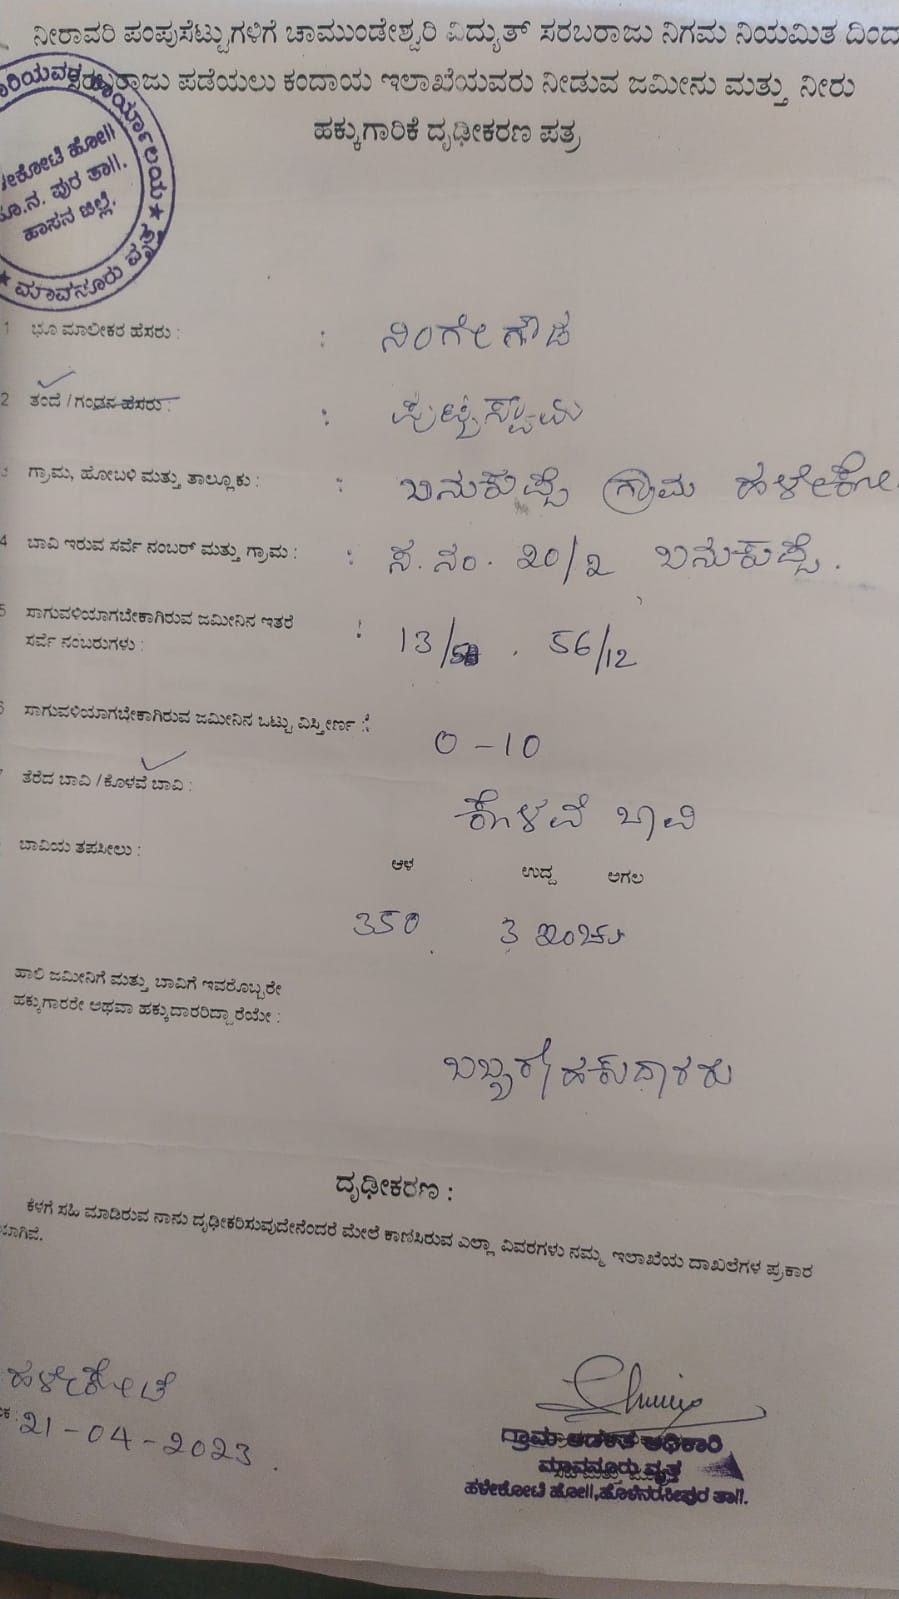 ನೀರಾವರಿ ಪಂಪುಸೆಟ್ಟುಗಳಿಗೆ ಚಾಮುಂಡೇಶ್ವರಿ ವಿದ್ಯುತ್ ಸರಬರಾಜು ನಿಗಮ ನಿಯಮಿತ ದಿಂದ
ಸರಬರಾಜು ಪಡೆಯಲು ಕಂದಾಯ ಇಲಾಖೆಯವರು ನೀಡುವ ಜಮೀನು ಮತ್ತು ನೀರು
ಹಕ್ಕುಗಾರಿಕೆ ದೃಢೀಕರಣ ಪತ್ರ
ಕಾರ್ಯಾಲಯ ★
ಹೋ||
ಪುರ ತಾ||.
ಹಾಸನ ಜಿಲ್ಲೆ.
★ ಮಾವನೂರು ವೃತ್ತ
1 ಭೂ ಮಾಲೀಕರ ಹೆಸರು : : ನಿಂಗೇಗೌಡ
2 ತಂದೆ / ಗಂಡನ ಹೆಸರು : : ಪುಟ್ಟಸ್ವಾಮಿ
ಗ್ರಾಮ, ಹೋಬಳಿ ಮತ್ತು ತಾಲ್ಲೂಕು : : ಬನುಕುಪ್ಪೆ ಗ್ರಾಮ ಹಳೇಕೋ
4 ಬಾವಿ ಇರುವ ಸರ್ವೆ ನಂಬರ್ ಮತ್ತು ಗ್ರಾಮ : : ಸ.ನಂ. 20/2 ಬನುಕುಪ್ಪೆ.
5 ಸಾಗುವಳಿಯಾಗಬೇಕಾಗಿರುವ ಜಮೀನಿನ ಇತರೆ
ಸರ್ವೆ ನಂಬರುಗಳು : : 13/ . 56/12
6 ಸಾಗುವಳಿಯಾಗಬೇಕಾಗಿರುವ ಜಮೀನಿನ ಒಟ್ಟು ವಿಸ್ತೀರ್ಣ : 0-10
ತೆರೆದ ಬಾವಿ / ಕೊಳವೆ ಬಾವಿ : ಕೊಳವೆ ಬಾವಿ
ಬಾವಿಯ ತಪಸೀಲು :
ಆಳ ಉದ್ದ ಅಗಲ
350 3 ಇಂಚು
ಹಾಲಿ ಜಮೀನಿಗೆ ಮತ್ತು ಬಾವಿಗೆ ಇವರೊಬ್ಬರೇ
ಹಕ್ಕುಗಾರರೇ ಅಥವಾ ಹಕ್ಕುದಾರರಿದ್ದಾರೆಯೇ :
ದೃಢೀಕರಣ :
ಕೆಳಗೆ ಸಹಿ ಮಾಡಿರುವ ನಾನು ದೃಢೀಕರಿಸುವುದೇನೆಂದರೆ ಮೇಲೆ ಕಾಣಿಸಿರುವ ಎಲ್ಲಾ ವಿವರಗಳು ನಮ್ಮ ಇಲಾಖೆಯ ದಾಖಲೆಗಳ ಪ್ರಕಾರ
ಯಾಗಿವೆ.
ಹಳೇಕೋಟೆ
21-04-2023
ಗ್ರಾಮ ಆಡಳಿತ ಅಧಿಕಾರಿ
ಮಾವನೂರು ವೃತ್ತ
ಹಳೇಕೋಟೆ ಹೋ||, ಹೊಳೆನರಸೀಪುರ ತಾ||.